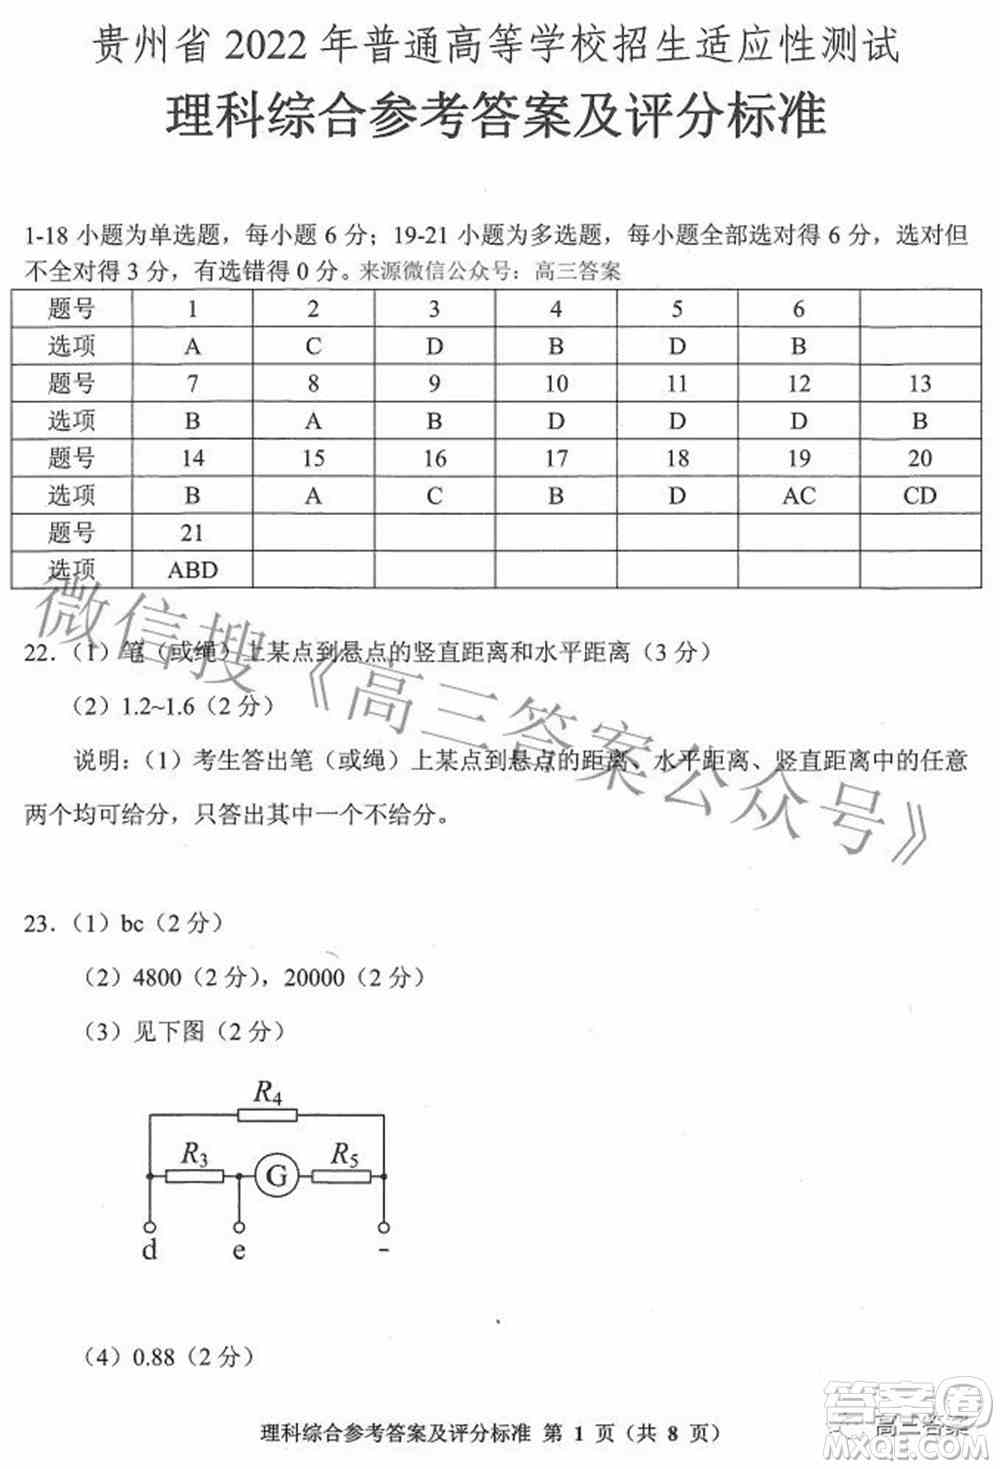 贵州省 2022 年普通高等学校招生适应性测试
理科综合参考答案及评分标准
1-18 小题为单选题，每小题 6 分；19-21 小题为多选题，每小题全部选对得 6 分，选对但
不全对得 3 分，有选错得 0 分。来源微信公众号：高三答案
题号 1 2 3 4 5 6
选项 A C D B D B
题号 7 8 9 10 11 12 13
选项 B A B D D D B
题号 14 15 16 17 18 19 20
选项 B A C B D AC CD
题号 21
选项 ABD
微信搜《高三答案公众号》
22．（1）笔（或绳）上某点到悬点的竖直距离和水平距离（3 分）
（2）1.2~1.6（2 分）
说明：（1）考生答出笔（或绳）上某点到悬点的距离、水平距离、竖直距离中的任意
两个均可给分，只答出其中一个不给分。
23．（1）bc（2 分）
（2）4800（2 分），20000（2 分）
（3）见下图（2 分）
R4
R3 G R5
d e -
（4）0.88（2 分）
理科综合参考答案及评分标准 第 1 页（共 8 页）
答案卷
高三答案
MXQE.COM